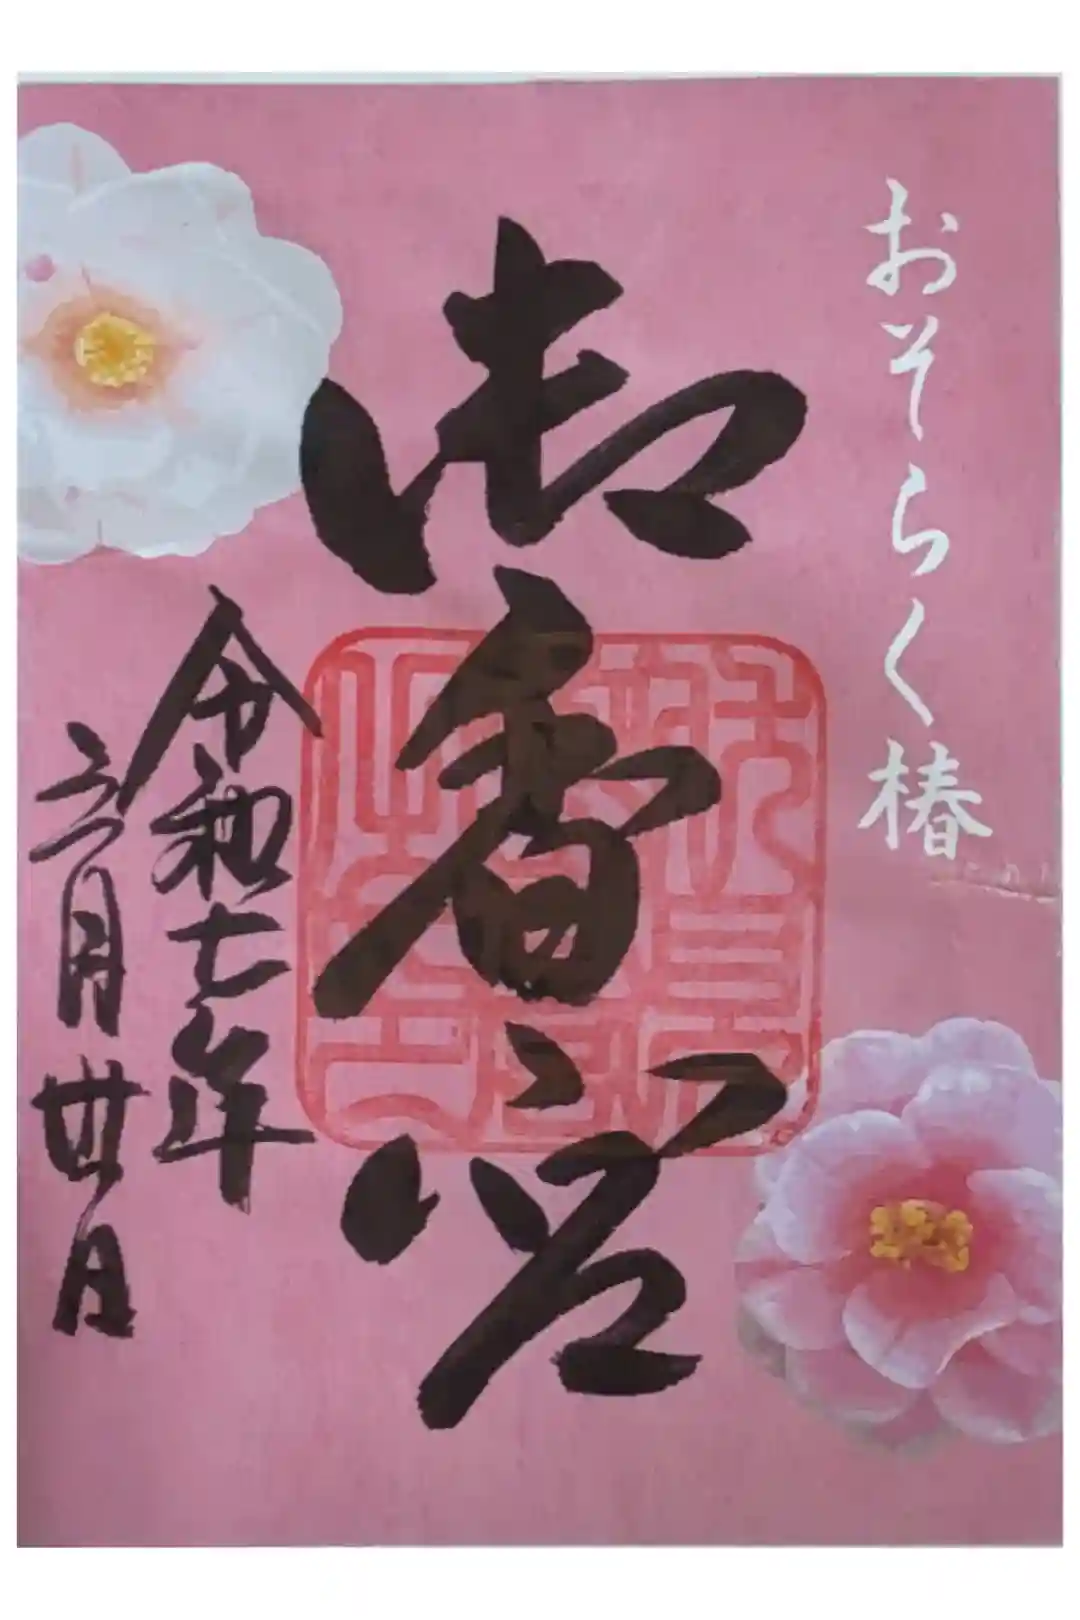 おそらく椿
御香宮
令和七年
三月廿日